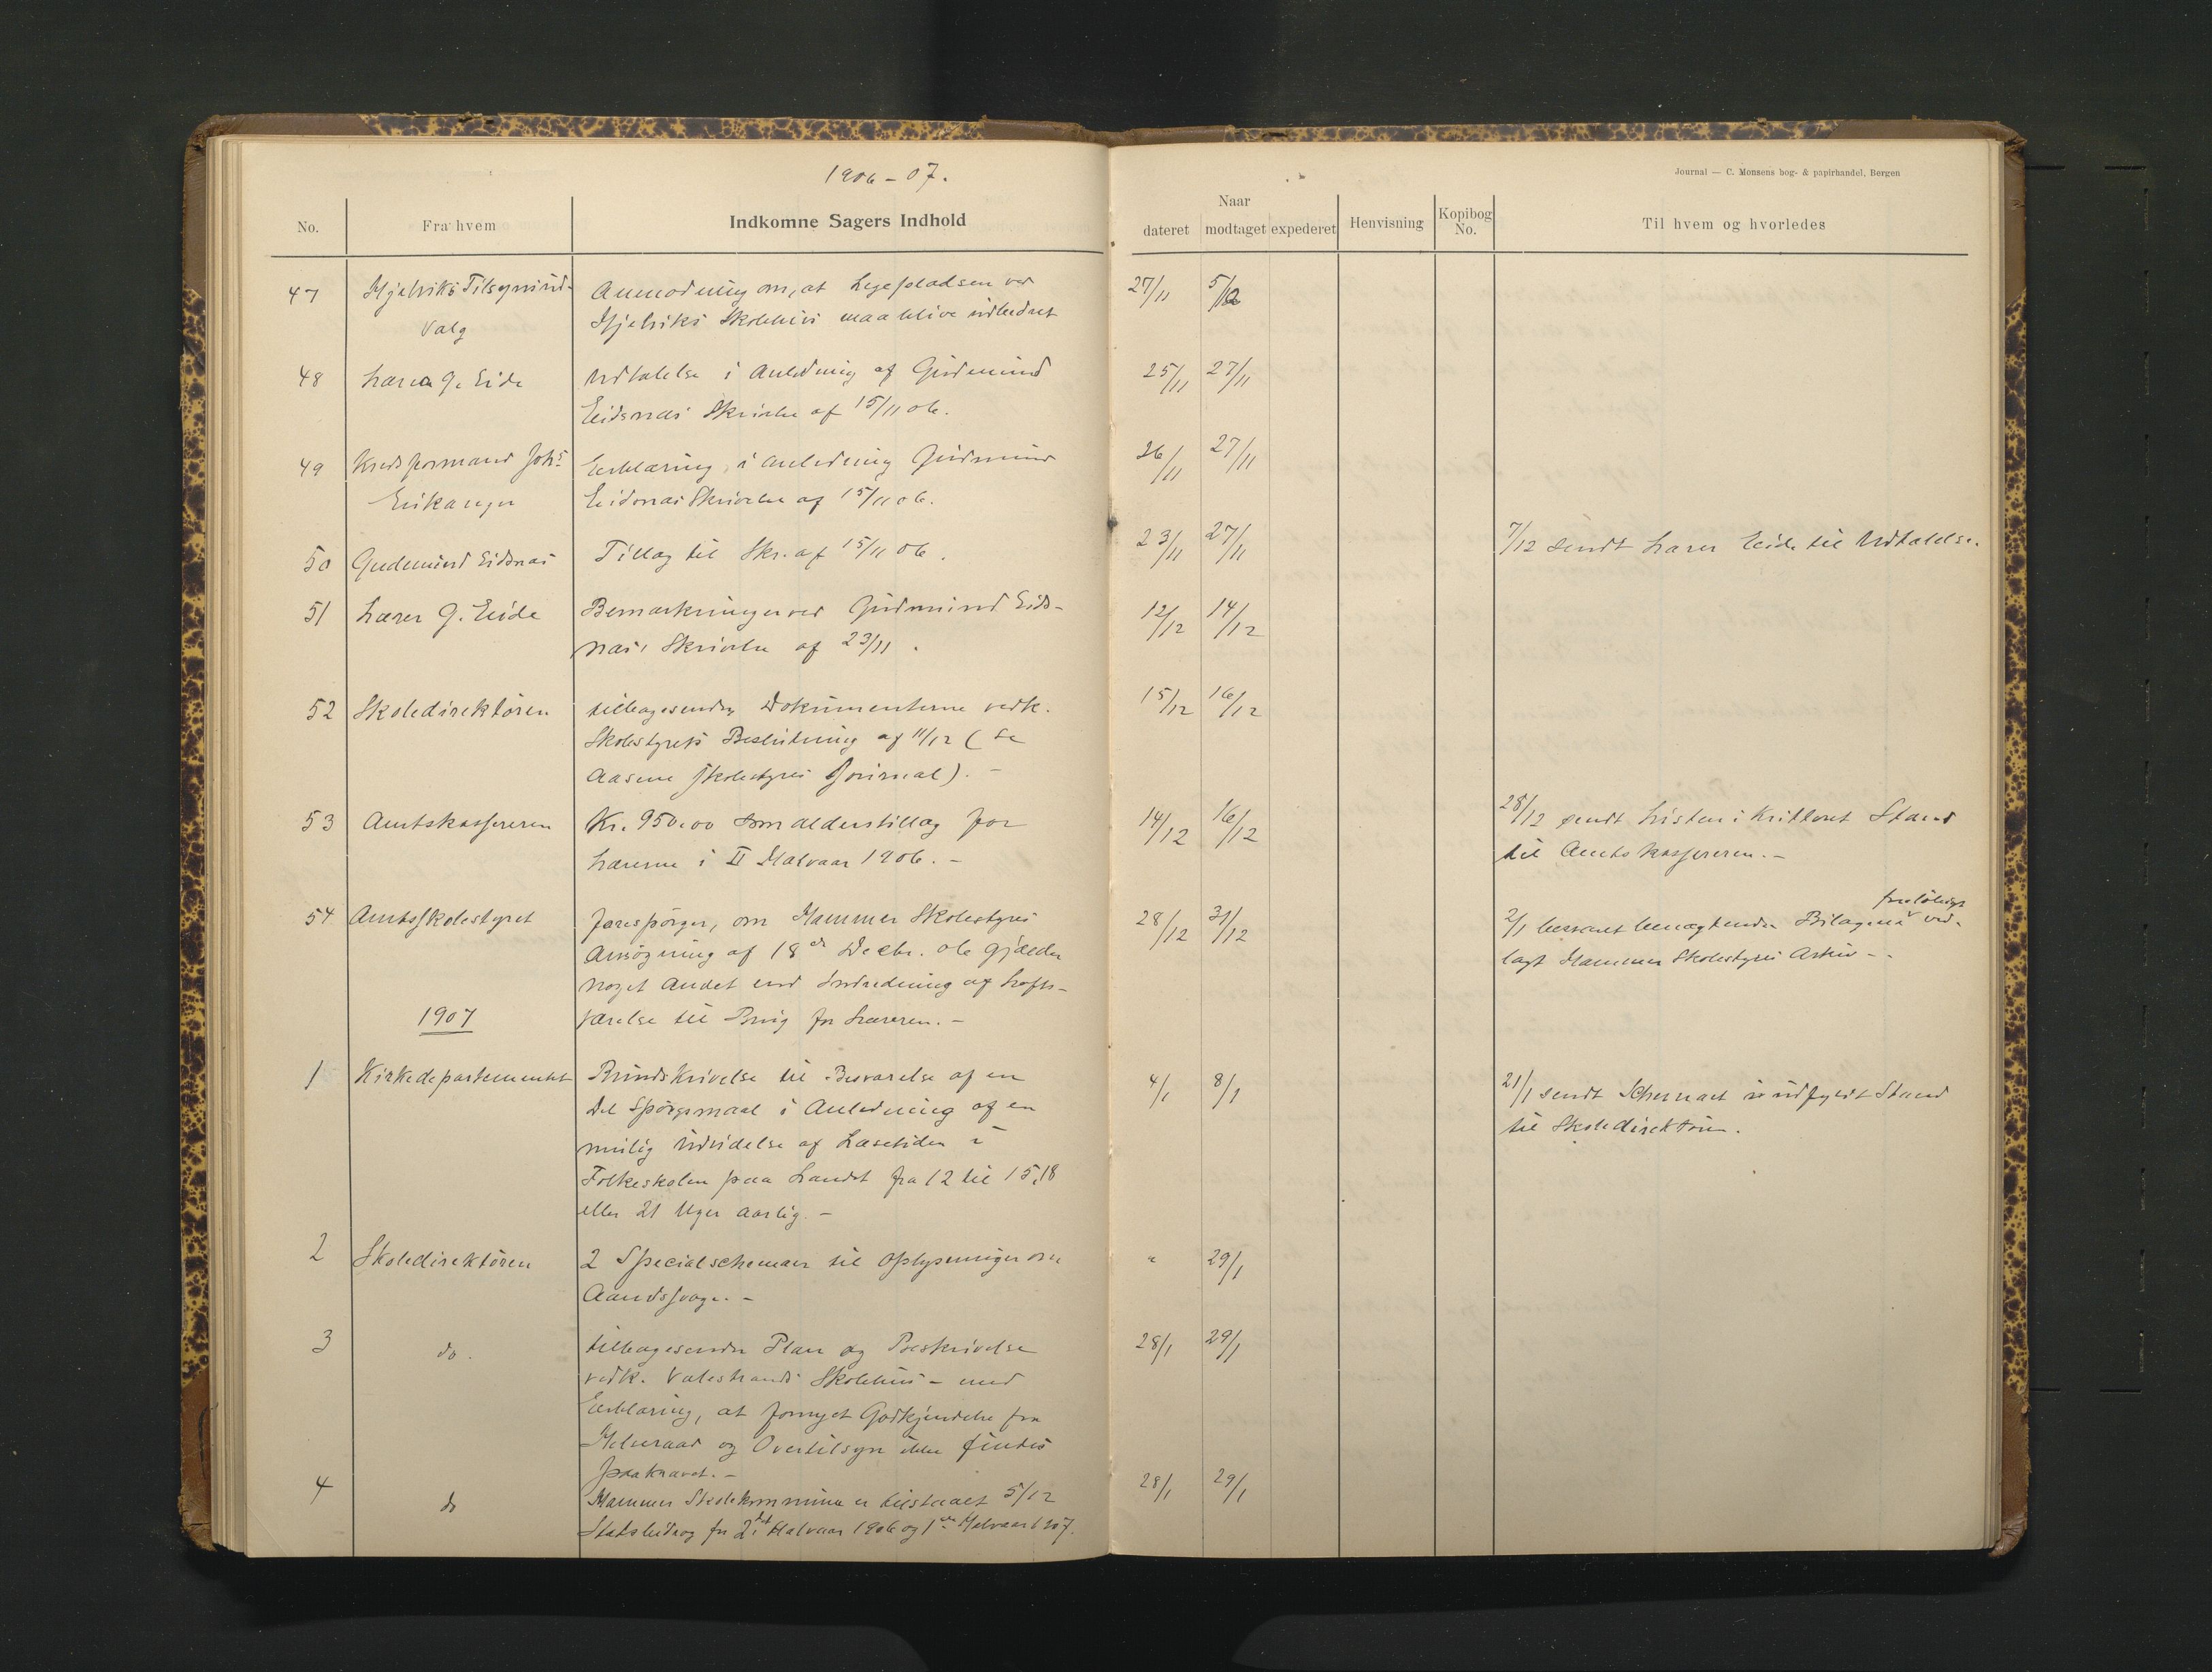 1906–07.
Journal — C. Monsens bog- & papirhandel, Bergen
No. Fra hvem Indkomne Sagers Indhold Naar dateret modtaget expederet Henvisning Kopibog No. Til hvem og hvorledes
47 Hjelviks Tilsynsud- Anmodning om, at Legepladsen ved 27/11 5/12
valg Hjelviks Skolehus maa blive udbedret
48 Lærer G. Eide Udtalelse i Anledning af Gudmund 25/11 27/11
Eidsnæs' Skrivelse af 15/11 06.
49 Kredsformand Johs Erklæring i Anledning Gudmund 26/11 27/11
Eikanger Eidsnæs Skrivelse af 15/11 06.
50 Gudmund Eidsnæs Tillæg til Skr. af 15/11 06. 23/11 27/11 7/12 sendt Lærer Eide til Udtalelse.
51 Lærer G. Eide Bemærkninger ved Gudmund Eids- 12/12 14/12
næs' Skrivelse af 23/11.
52 Skoledirektøren tilbagesender Dokumenterne vedk. 15/12 16/12
Skolestyrets Beslutning af 11/12 (se
Aasene Skolestyres Journal). –
53 Amtskassereren Kr. 950.00 som alderstillæg for 14/12 16/12 28/12 sendt Listen i kvitteret Stand
Lærerne i II Halvaar 1906. – til Amtskassereren. –
54 Amtsskolestyret forespørger, om Hammer Skolestyres 28/12 31/12 2/1 besvaret benægtende. Bilagene foreløbigt ved-
Ansøgning af 18de Decbr. 06 gjælder lagt Hammer Skolestyres Arkiv –
noget andet end Indredning af Lofts-
1907 værelse til Brug for Læreren. –
1 Kirkedepartementet Rundskrivelse til Besvarelse af en 4/1 8/1 21/1 sendt Schemaet i udfyldt Stand
Del Spørgsmaal i Anledning af en til Skoledirektøren.
mulig Udvidelse af Læsetiden i
Folkeskolen paa Landet fra 12 til 15, 18
eller 21 Uger aarlig. –
2 Skoledirektøren 2 Specialschemaer til Oplysninger om " 29/1
Aandssvage. –
3 do. tilbagesender Plan og Beskrivelse 28/1 29/1
vedk. Valestrands Skolehus – med
Erklæring, at fornyet Godkjendelse fra
Helseraad og Overtilsyn ikke findes
paakrævet. –
4 do Hammer Skolekommune er tilstaaet 5/12 28/1 29/1
Statsbidrag for 2det Halvaar 1906 og 1ste Halvaar 1907.